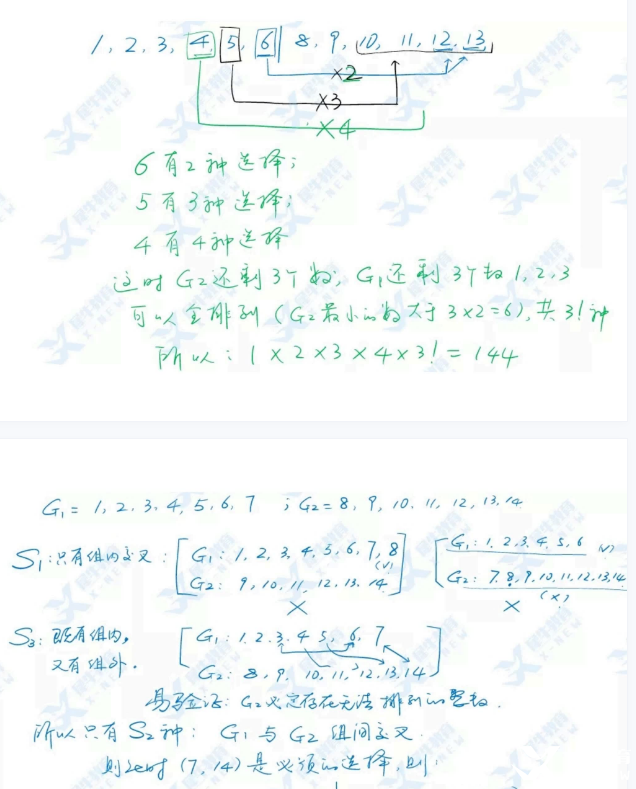 1, 2, 3, 4, 5, 6 | 8, 9, 10, 11, 12, 13
×2
×3
×4
6有2种选择;
5有3种选择;
4有4种选择
这时G2还剩3个数, G1还剩3个数1,2,3
可以全排列(G2最小的数大于3×2=6), 共3!种
所以: 1×2×3×4×3! = 144
G1 = 1, 2, 3, 4, 5, 6, 7 ; G2 = 8, 9, 10, 11, 12, 13, 14
S1: 只有组内交叉: G1: 1, 2, 3, 4, 5, 6, 7, 8 (√) G1: 1, 2, 3, 4, 5, 6 (√)
G2: 9, 10, 11, 12, 13, 14 × G2: 7, 8, 9, 10, 11, 12, 13, 14 × (×)
S2: 既有组内, G1: 1, 2, 3, 4, 5, 6, 7
又有组外. G2: 8, 9, 10, 11, 12, 13, 14
易验证: G2必定存在无法排列的整数.
所以只有S2种: G1与G2组间交叉.
则此时(7, 14)是必须的选择, 则: